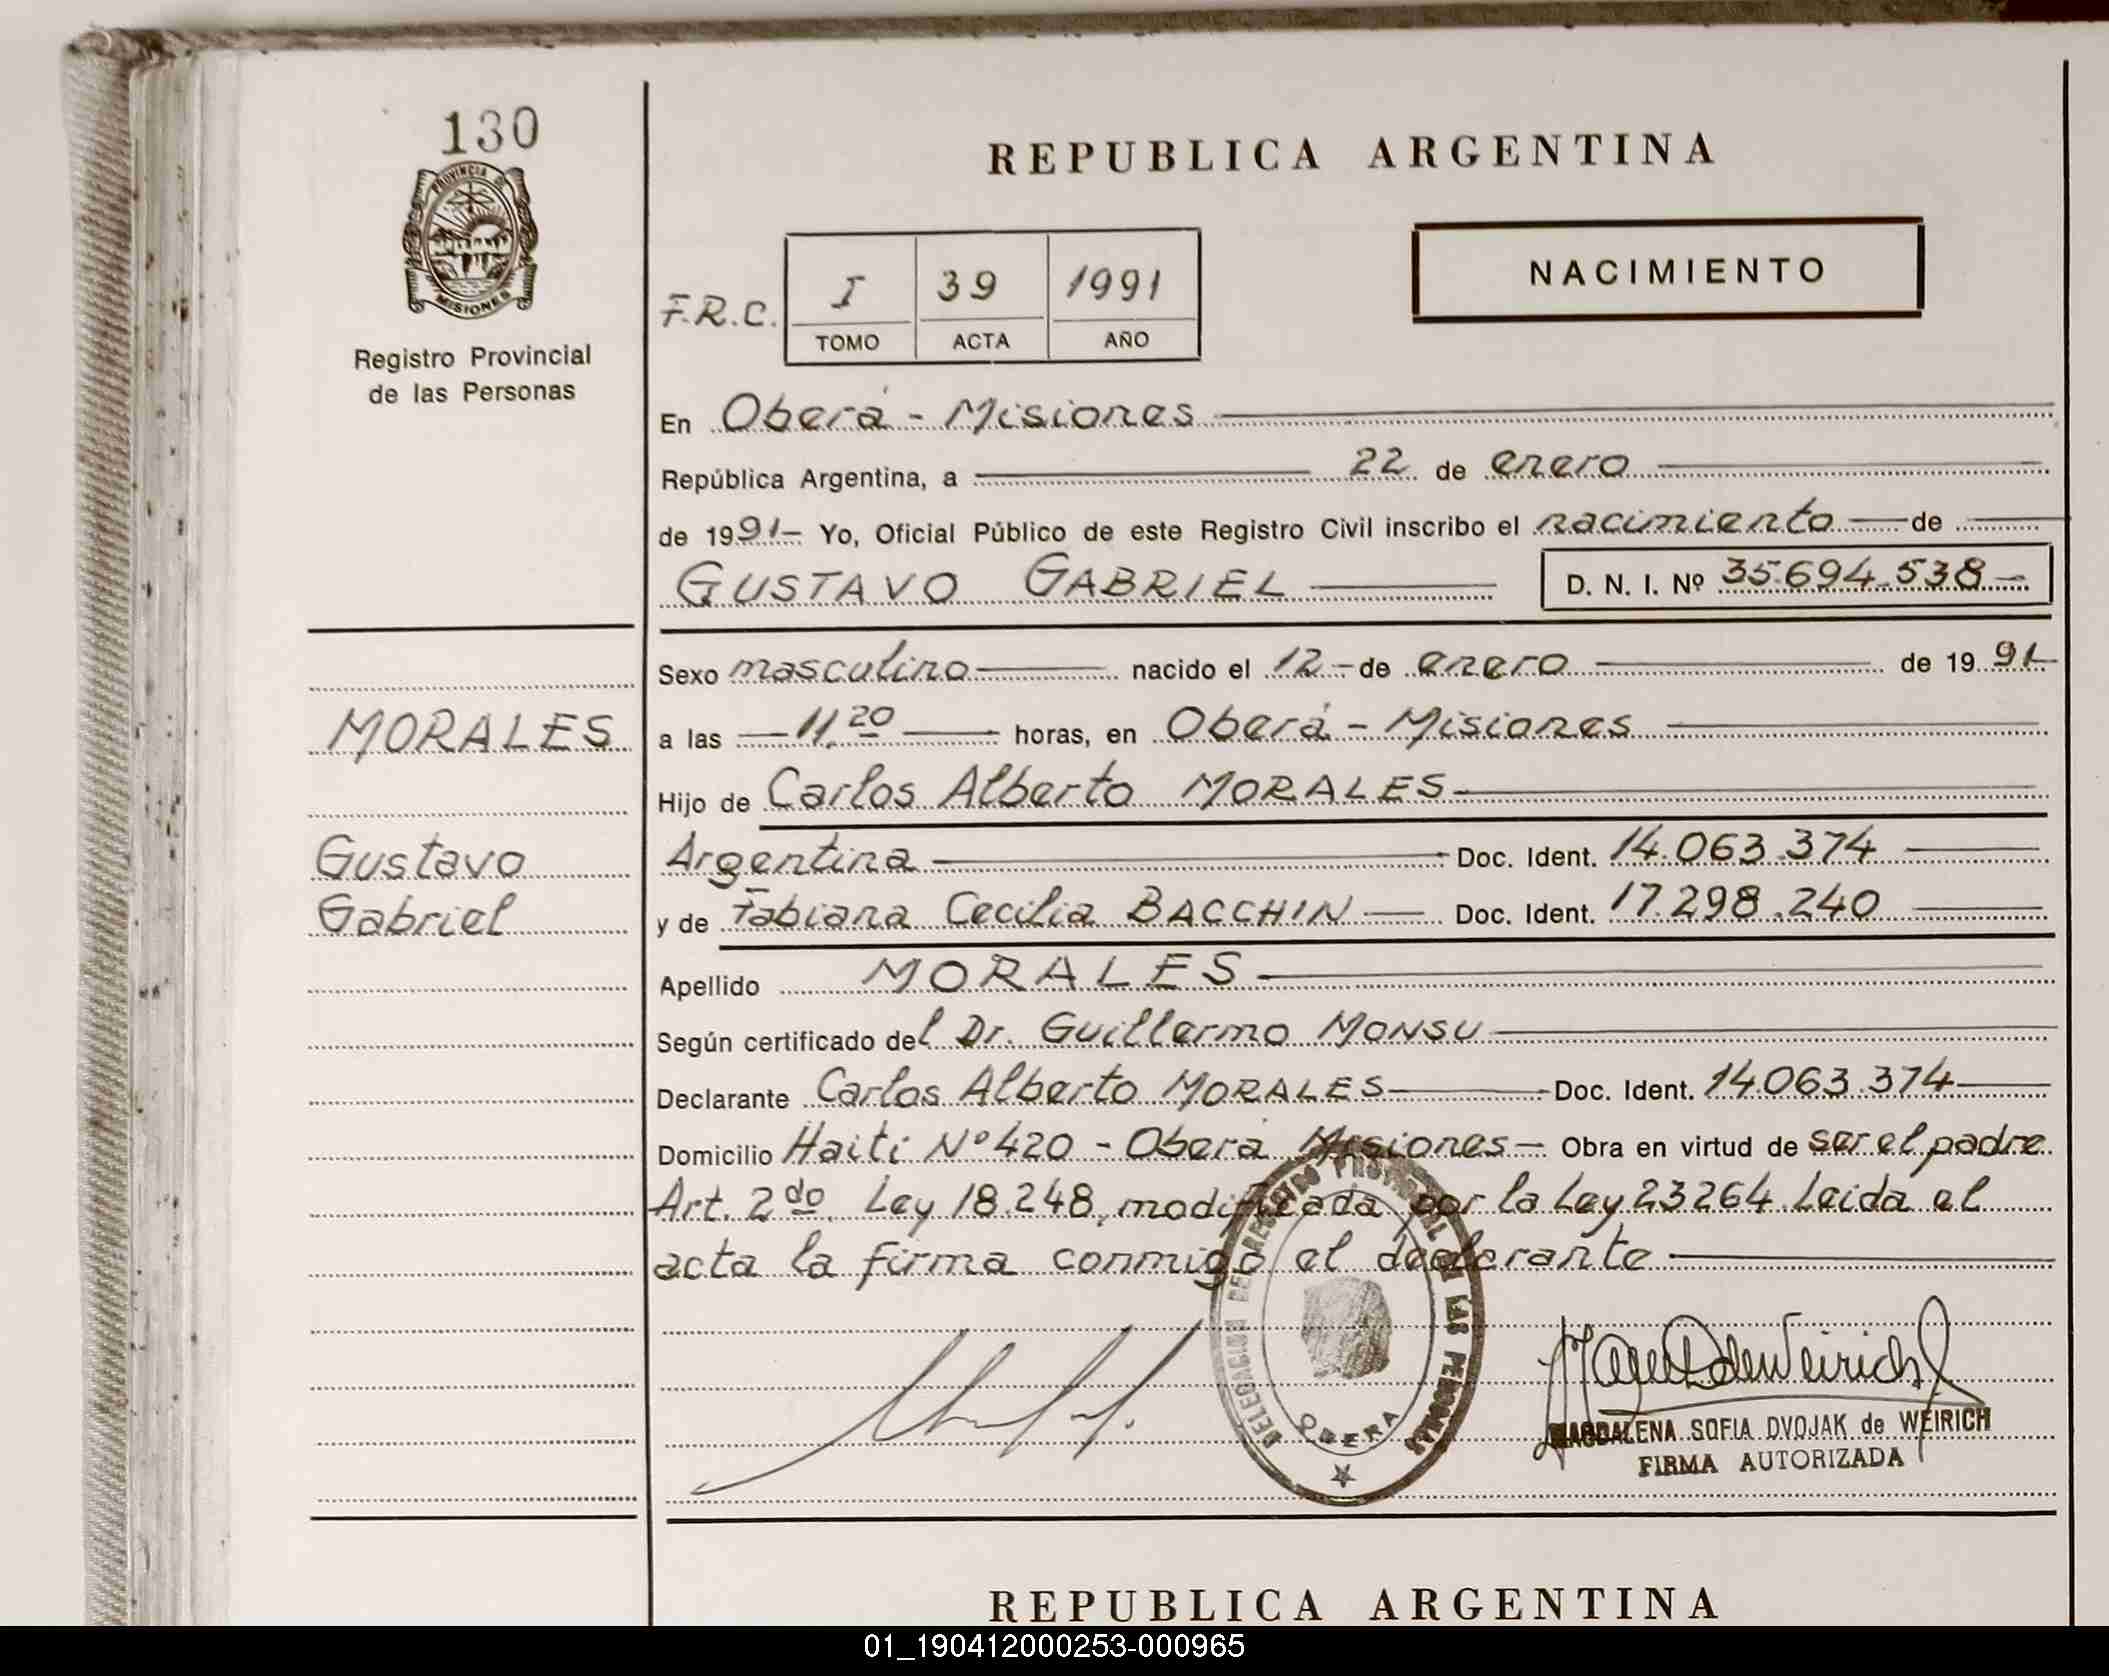 130
PROVINCIA DE
MISIONES
Registro Provincial
de las Personas
REPUBLICA ARGENTINA
F.R.C. I 39 1991
TOMO ACTA AÑO
NACIMIENTO
En Oberá - Misiones
República Argentina, a 22 de enero
de 1991- Yo, Oficial Público de este Registro Civil inscribo el nacimiento de
GUSTAVO GABRIEL D. N. I. Nº 35.694.538-
Sexo masculino nacido el 12 - de enero de 1991
MORALES
a las 11.20 horas, en Oberá - Misiones
Hijo de Carlos Alberto MORALES
Gustavo
Argentina Doc. Ident. 14.063.374
Gabriel
y de Fabiana Cecilia BACCHIN Doc. Ident. 17.298.240
Apellido MORALES
Según certificado del Dr. Guillermo MONSU
Declarante Carlos Alberto MORALES Doc. Ident. 14.063.374
Domicilio Haití Nº 420 - Oberá Misiones - Obra en virtud de ser el padre
Art. 2do. Ley 18.248, modificada por la Ley 23264. Leida el
acta la firma conmigo el declarante
DELEGACION DEL REGISTRO PROVINCIAL DE LAS PERSONAS
OBERA
MAGDALENA SOFIA DVOJAK de WEIRICH
FIRMA AUTORIZADA
REPUBLICA ARGENTINA
01_190412000253-000965